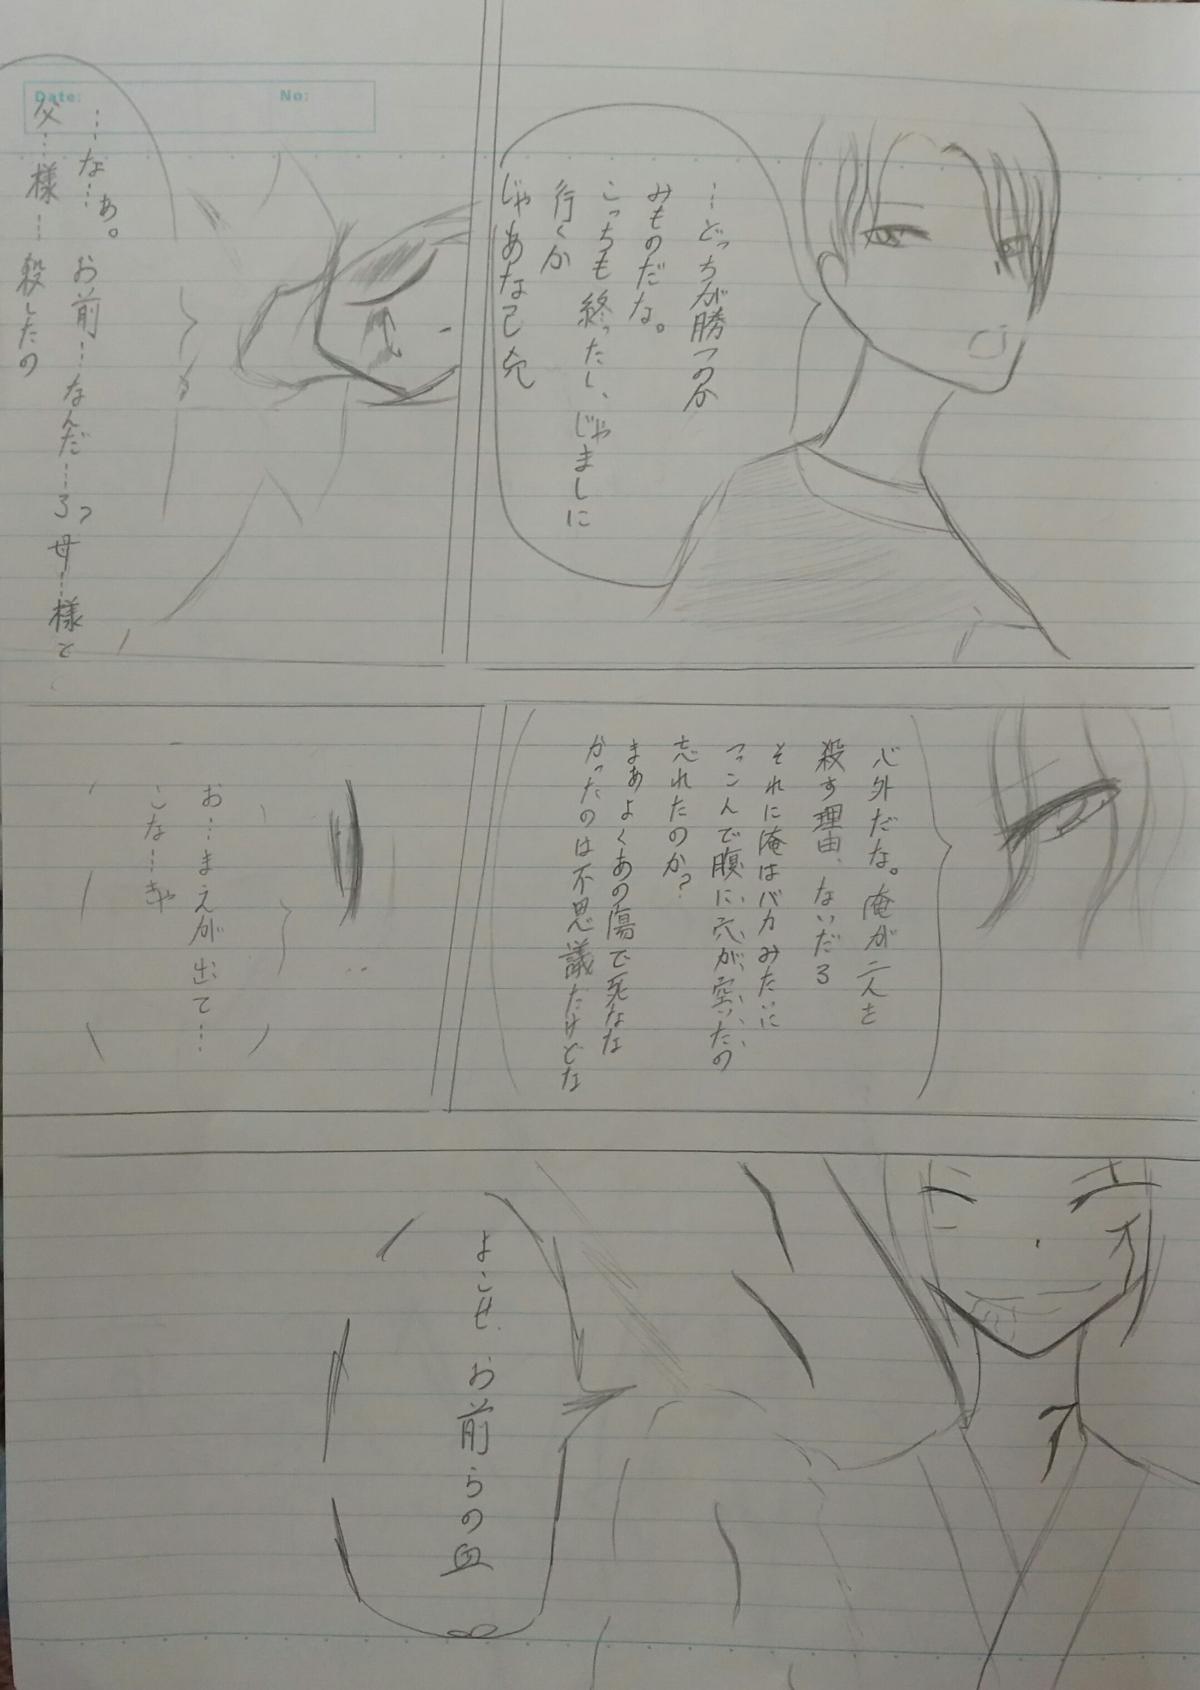 …どっちが勝つのか
みものだな。
こっちも終ったし、じゃましに
行くか
じゃあな
…な…ぁ。お前…なんだ…ろ?母…様と
父…様…殺したの
心外だな。俺が二人を
殺す理由、ないだろ
それに俺はバカみたいに
つっこんで腹に穴が空いたの
忘れたのか?
まあよくあの傷で死なな
かったのは不思議だけどな
お…まえが出て…
こな…きゃ
よこせ、お前らの血
Date:
No: